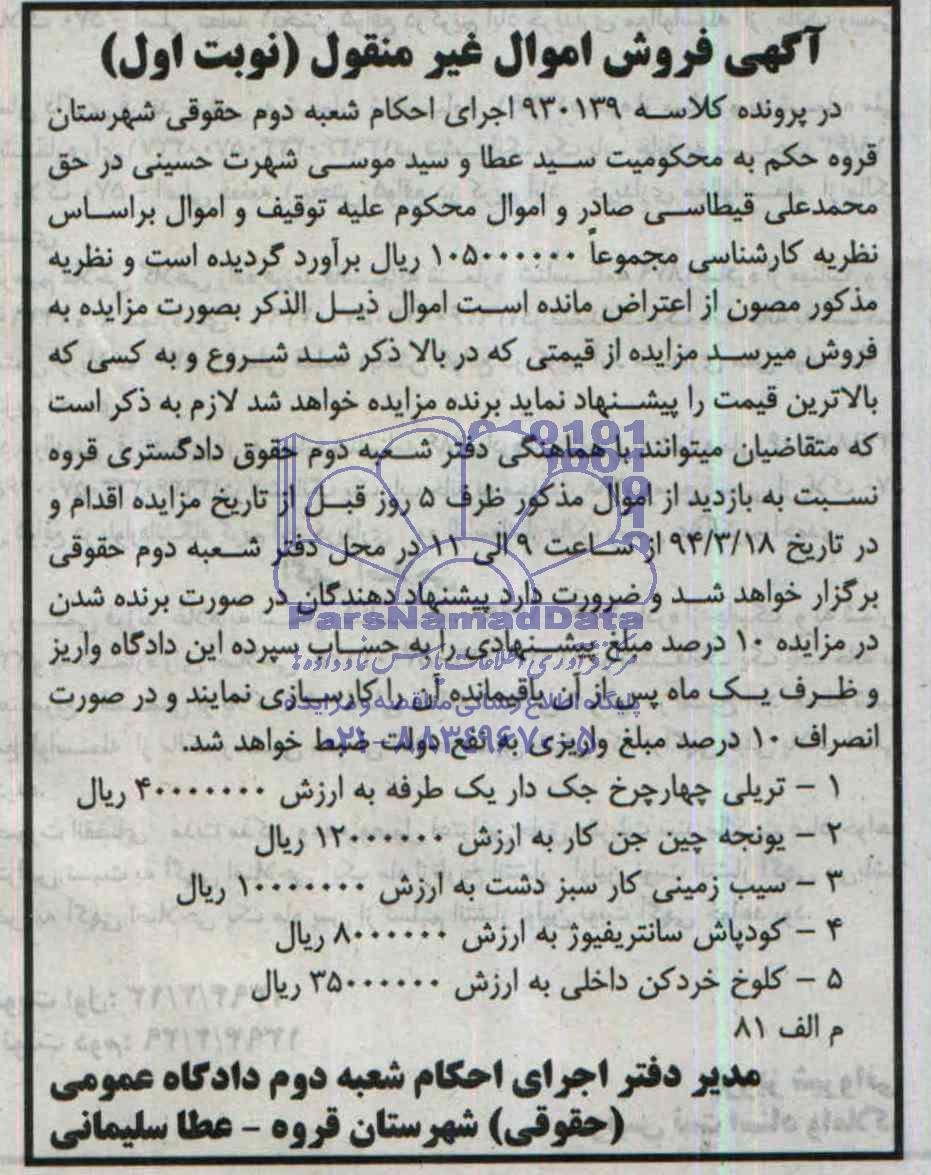 آگهی فروش اموال غیر منقول (نوبت اول)
در پرونده کلاسه ۹۳۰۱۳۹ اجرای احکام شعبه دوم حقوقی شهرستان
قروه حکم به محکومیت سید عطا و سید موسی شهرت حسینی در حق
محمدعلی قیطاسی صادر و اموال محکوم علیه توقیف و اموال براساس
نظریه کارشناسی مجموعاً ۱۰۵۰۰۰۰۰۰ ریال برآورد گردیده است و نظریه
مذکور مصون از اعتراض مانده است اموال ذیل الذکر بصورت مزایده به
فروش میرسد مزایده از قیمتی که در بالا ذکر شد شروع و به کسی که
بالاترین قیمت را پیشنهاد نماید برنده مزایده خواهد شد لازم به ذکر است
که متقاضیان میتوانند با هماهنگی دفتر شعبه دوم حقوق دادگستری قروه
نسبت به بازدید از اموال مذکور ظرف ۵ روز قبل از تاریخ مزایده اقدام و
در تاریخ ۹۴/۳/۱۸ از ساعت ۹ الی ۱۱ در محل دفتر شعبه دوم حقوقی
برگزار خواهد شد و ضرورت دارد پیشنهاد دهندگان در صورت برنده شدن
ParsNamadData
در مزایده ۱۰ درصد مبلغ پیشنهادی را به حساب سپرده این دادگاه واریز
مرکز فرآوری اطلاعات پارس نماد داده ها
و ظرف یک ماه پس از آن باقیمانده آن را کارسازی نمایند و در صورت
پایگاه اطلاع رسانی مناقصه و مزایده
انصراف ۱۰ درصد مبلغ واریزی به نفع دولت ضبط خواهد شد.
۰۲۱-۸۸۳۴۹۶۷۰-۵
۱ - تریلی چهارچرخ جک دار یک طرفه به ارزش ۴۰۰۰۰۰۰۰ ریال
۲ - یونجه چین جن کار به ارزش ۱۲۰۰۰۰۰۰ ریال
۳ - سیب زمینی کار سبز دشت به ارزش ۱۰۰۰۰۰۰۰ ریال
۴ - کودپاش سانتریفیوژ به ارزش ۸۰۰۰۰۰۰ ریال
۵ - کلوخ خردکن داخلی به ارزش ۳۵۰۰۰۰۰۰ ریال
م الف ۸۱
مدیر دفتر اجرای احکام شعبه دوم دادگاه عمومی
(حقوقی) شهرستان قروه - عطا سلیمانی